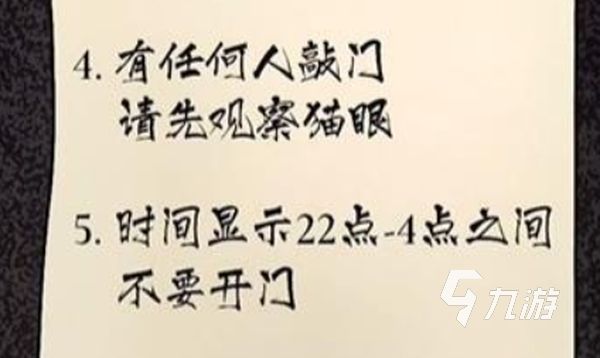 4. 有任何人敲门
请先观察猫眼
5. 时间显示22点-4点之间
不要开门
九游